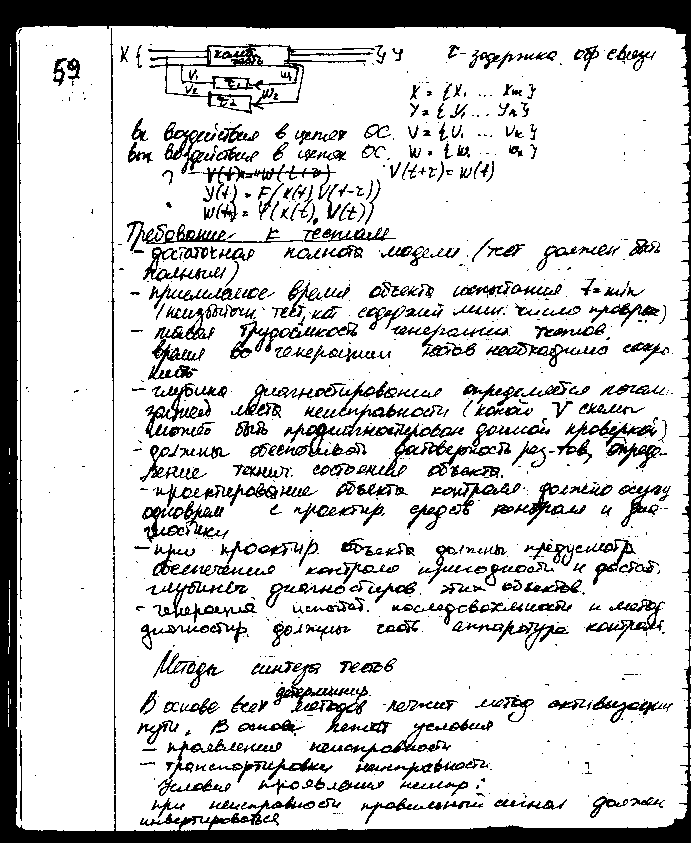 59
X { } Y τ-задержка обр связи
V1 τ1 W1
V2 τ2 W2
X = {X1 ... Xm}
Y = {Y1 ... Yn}
вх воздействия в цепях ОС. V = {V1 ... Vk}
вых воздействия в цепях ОС. W = {W1 ... Wk}
V(t+τ)=W(t)
Y(t) = F(X(t), V(t-τ))
W(t) = Ψ(X(t), V(t))
Требование к тестам
- достаточная полнота модели (тест должен быть
полным)
- приемлемое время объекта испытания t=min
(неизбыточн тест, кот содержит мин. число проверок)
- малая трудоёмкость генерации тестов,
время во генерации тестов необходимо сокра
тить
- глубина диагностирования определяется
места неисправности (какой V схемы
может быть продиагностирован данной проверкой)
- должны обеспечивать достоверность рез-тов, опреде
ление технич. состояния объекта.
- проектирование объекта контроля должно осущ
одноврем с проектир. средств контроля и диа
гностики
- при проектир. объекта должны предусматр
обеспечения контроля пригодности и достат.
глубины диагностиров. этих объектов.
- генерация испытат. последовательности и метод
диагностир. должны аппаратура контроля.
Методы синтеза тестов
детерминир.
В основе всех методов лежит метод активизации
пути. В основе лежат условия
- проявления неисправности
- транспортировки неисправности.
Условия проявления неиспр:
при неисправности правильный сигнал должен
инвертироваться